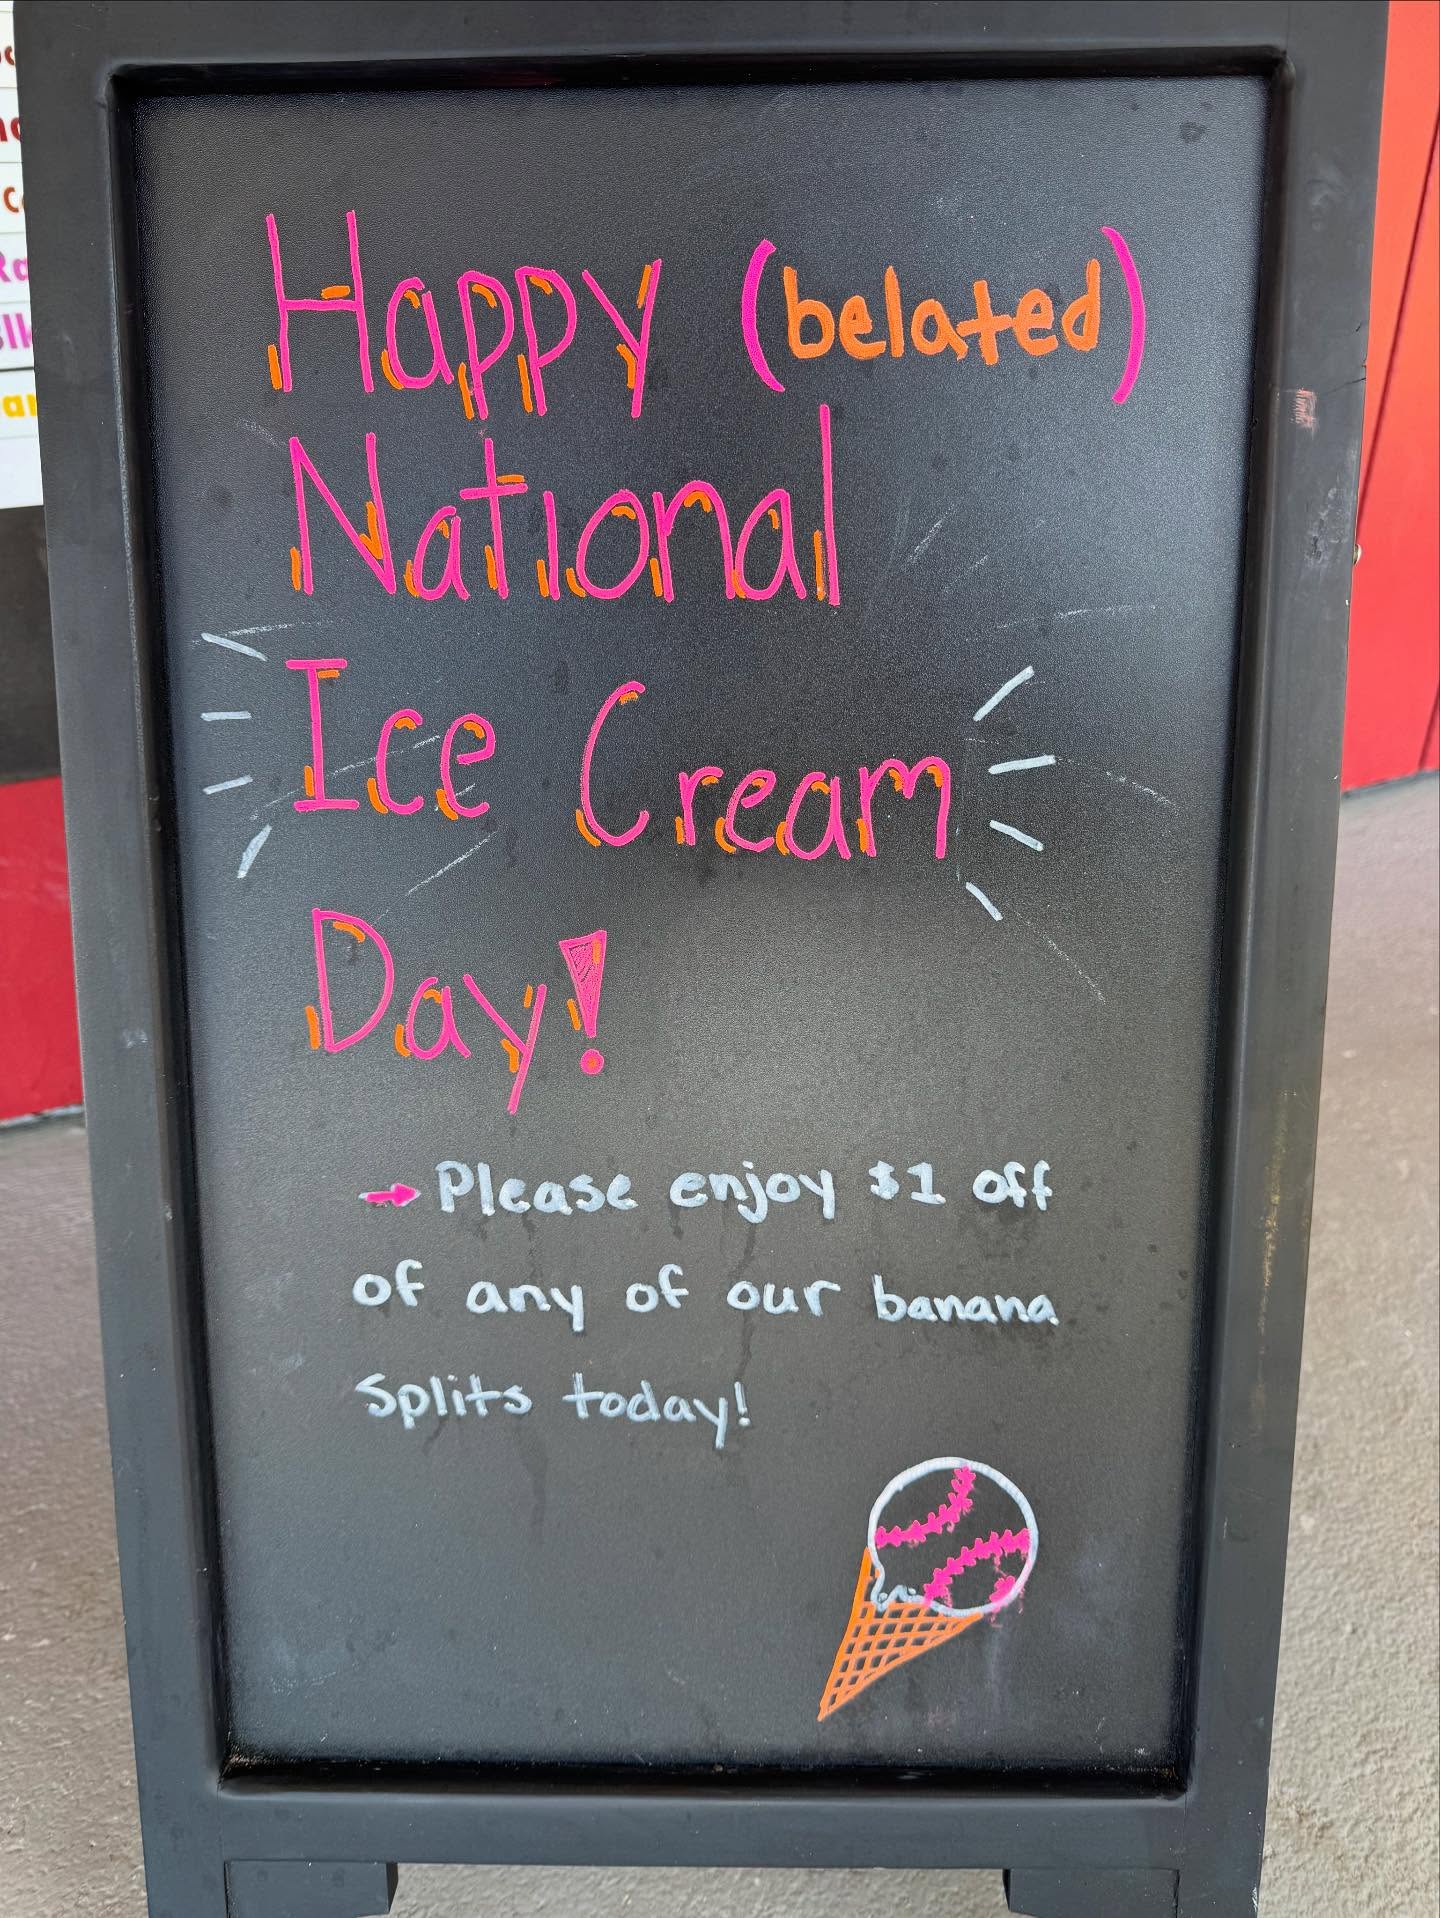 Happy (belated)
National
Ice Cream
Day!
→ Please enjoy $1 off
of any of our banana
Splits today!